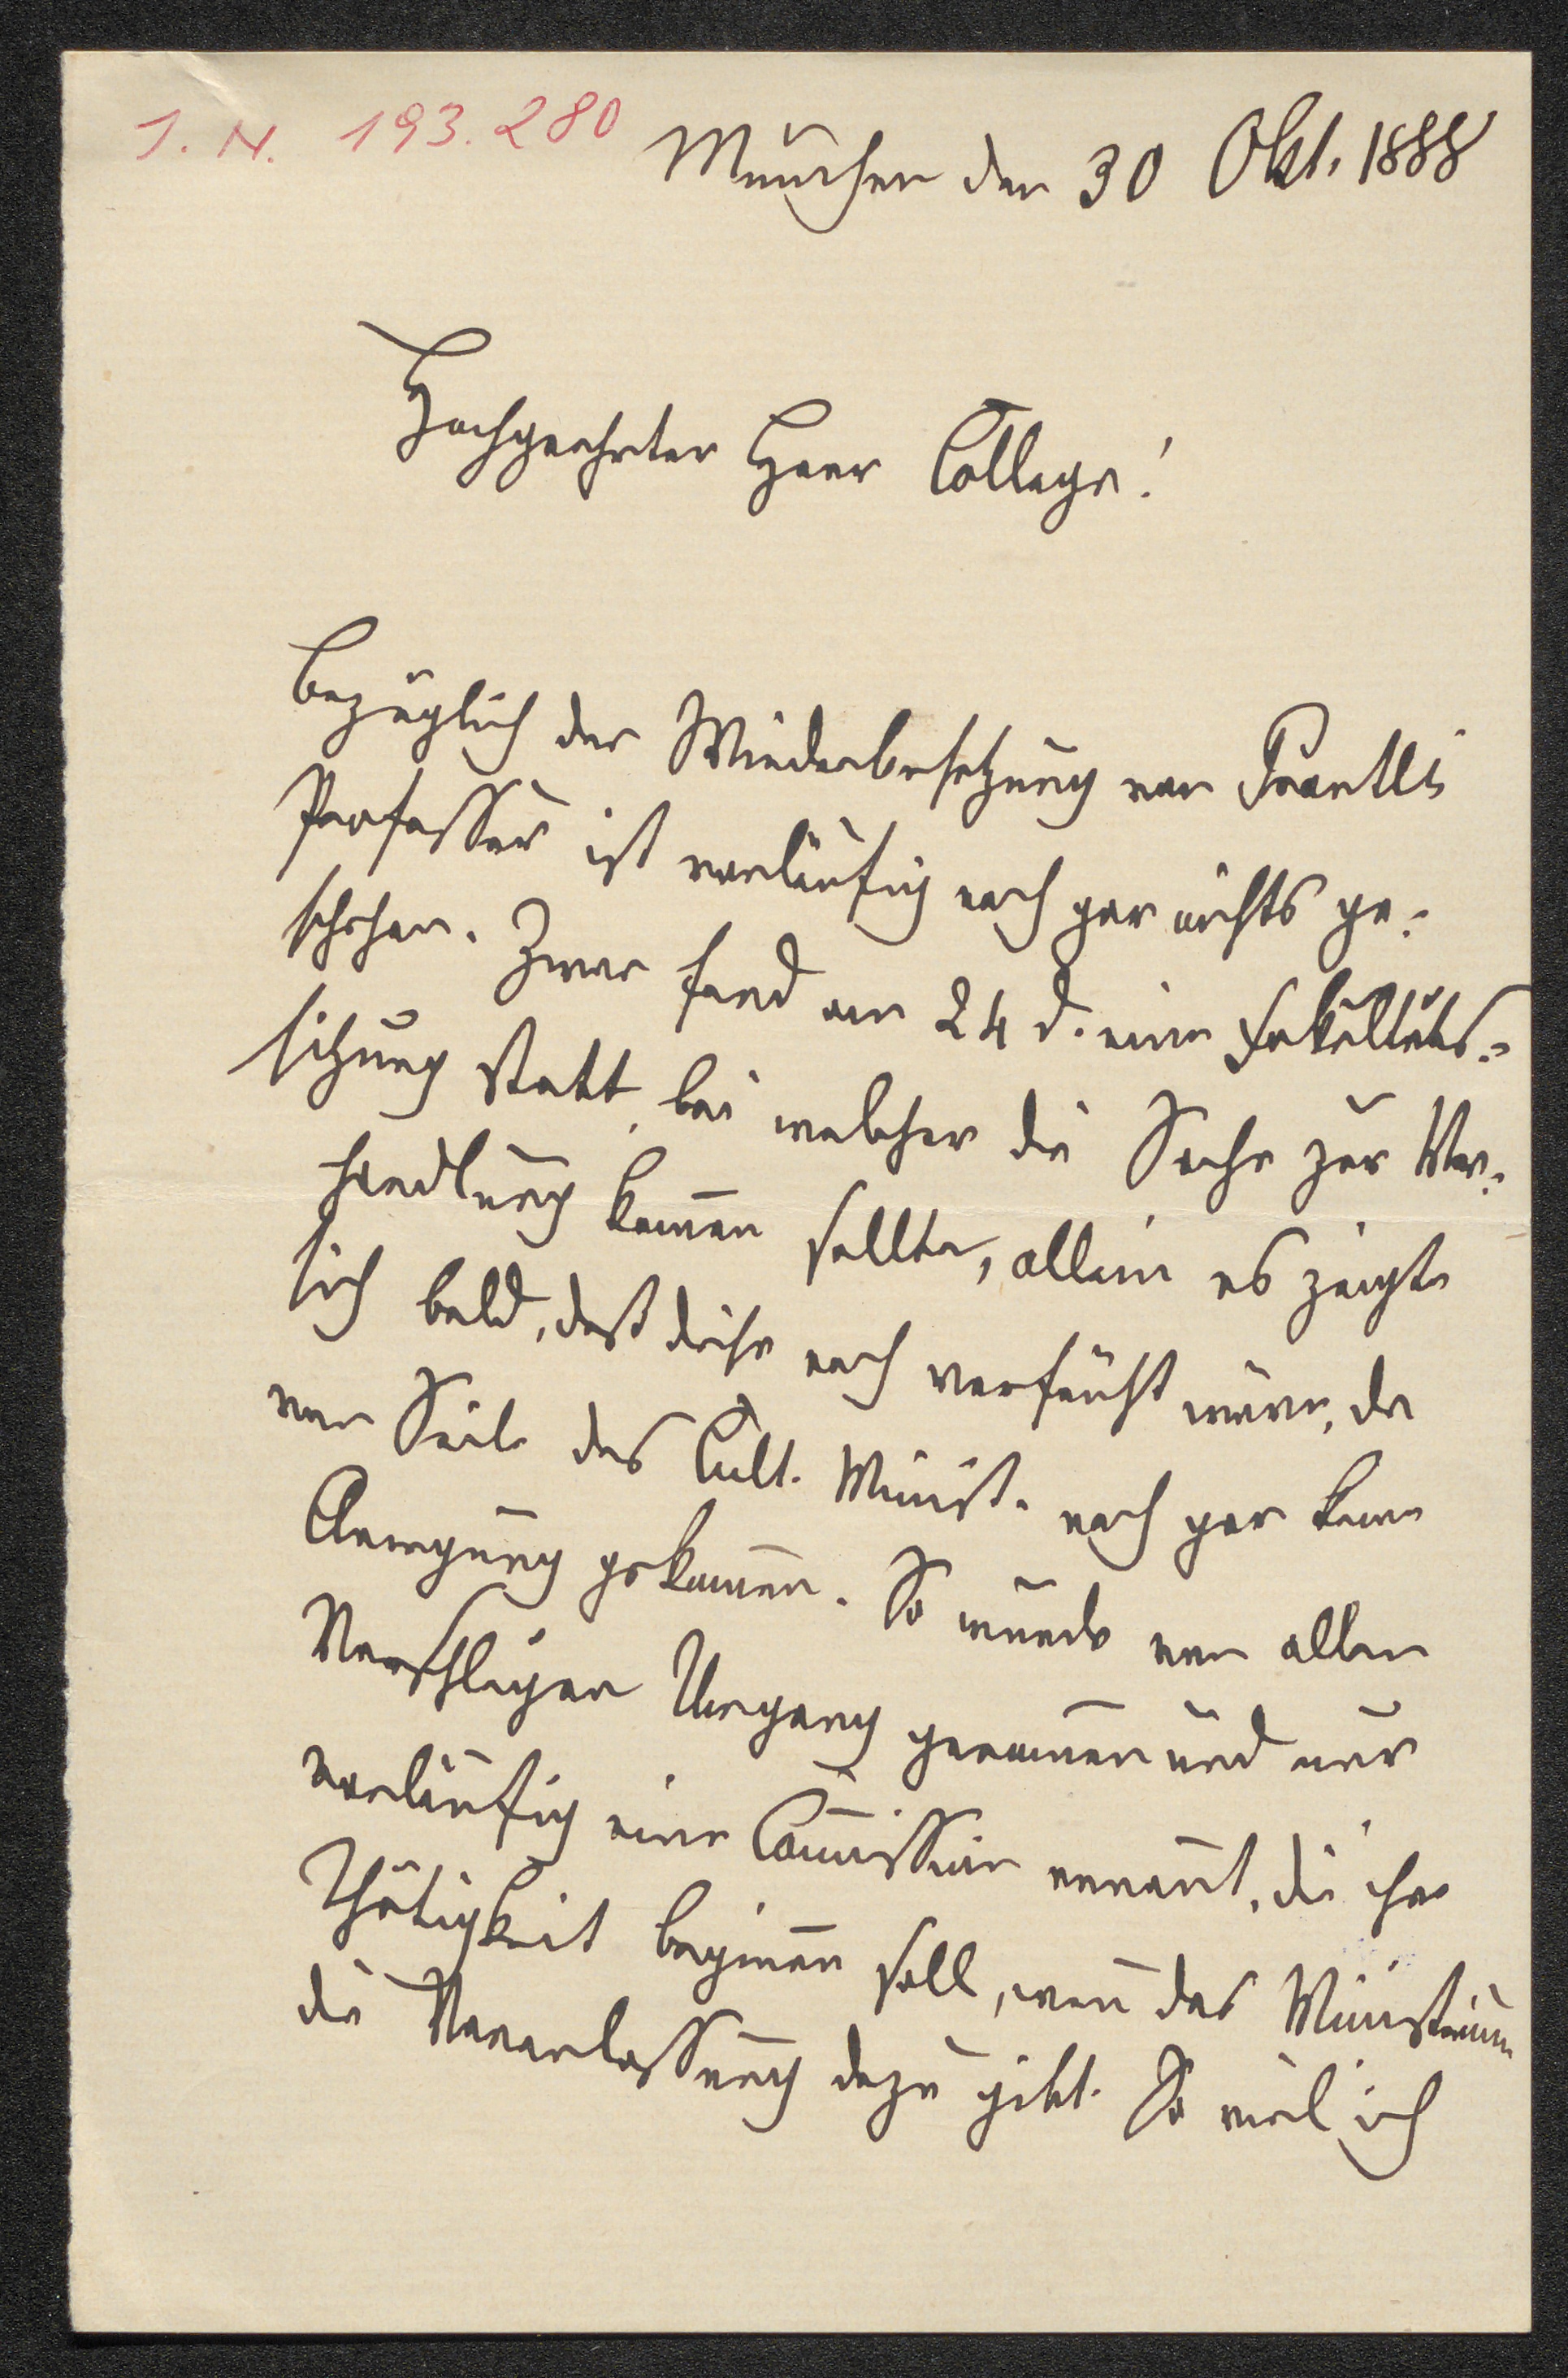 I. N. 193.280
München den 30 Okt. 1888
Hochgeehrter Herr College!
Bezüglich der Wiederbesetzung von Prantl's
Professur ist vorläufig noch gar nichts ge-
schehen. Zwar fand am 24 d. eine Fakultäts-
sitzung statt, bei welcher die Sache zur Ver-
handlung kom̅en sollte, allein es zeigte
sich bald, daß diese noch verfrüht wäre, da
von Seite des Cult. Minist. noch gar keine
Anregung gekom̅en. So wurde von allen
Vorschlägen Umgang genom̅en und nur
vorläufig eine Com̅ission ernan̅t, die ihre
Thätigkeit begin̅en soll, wen̅ das Ministerium
die Veranlassung dazu gibt. So viel ich